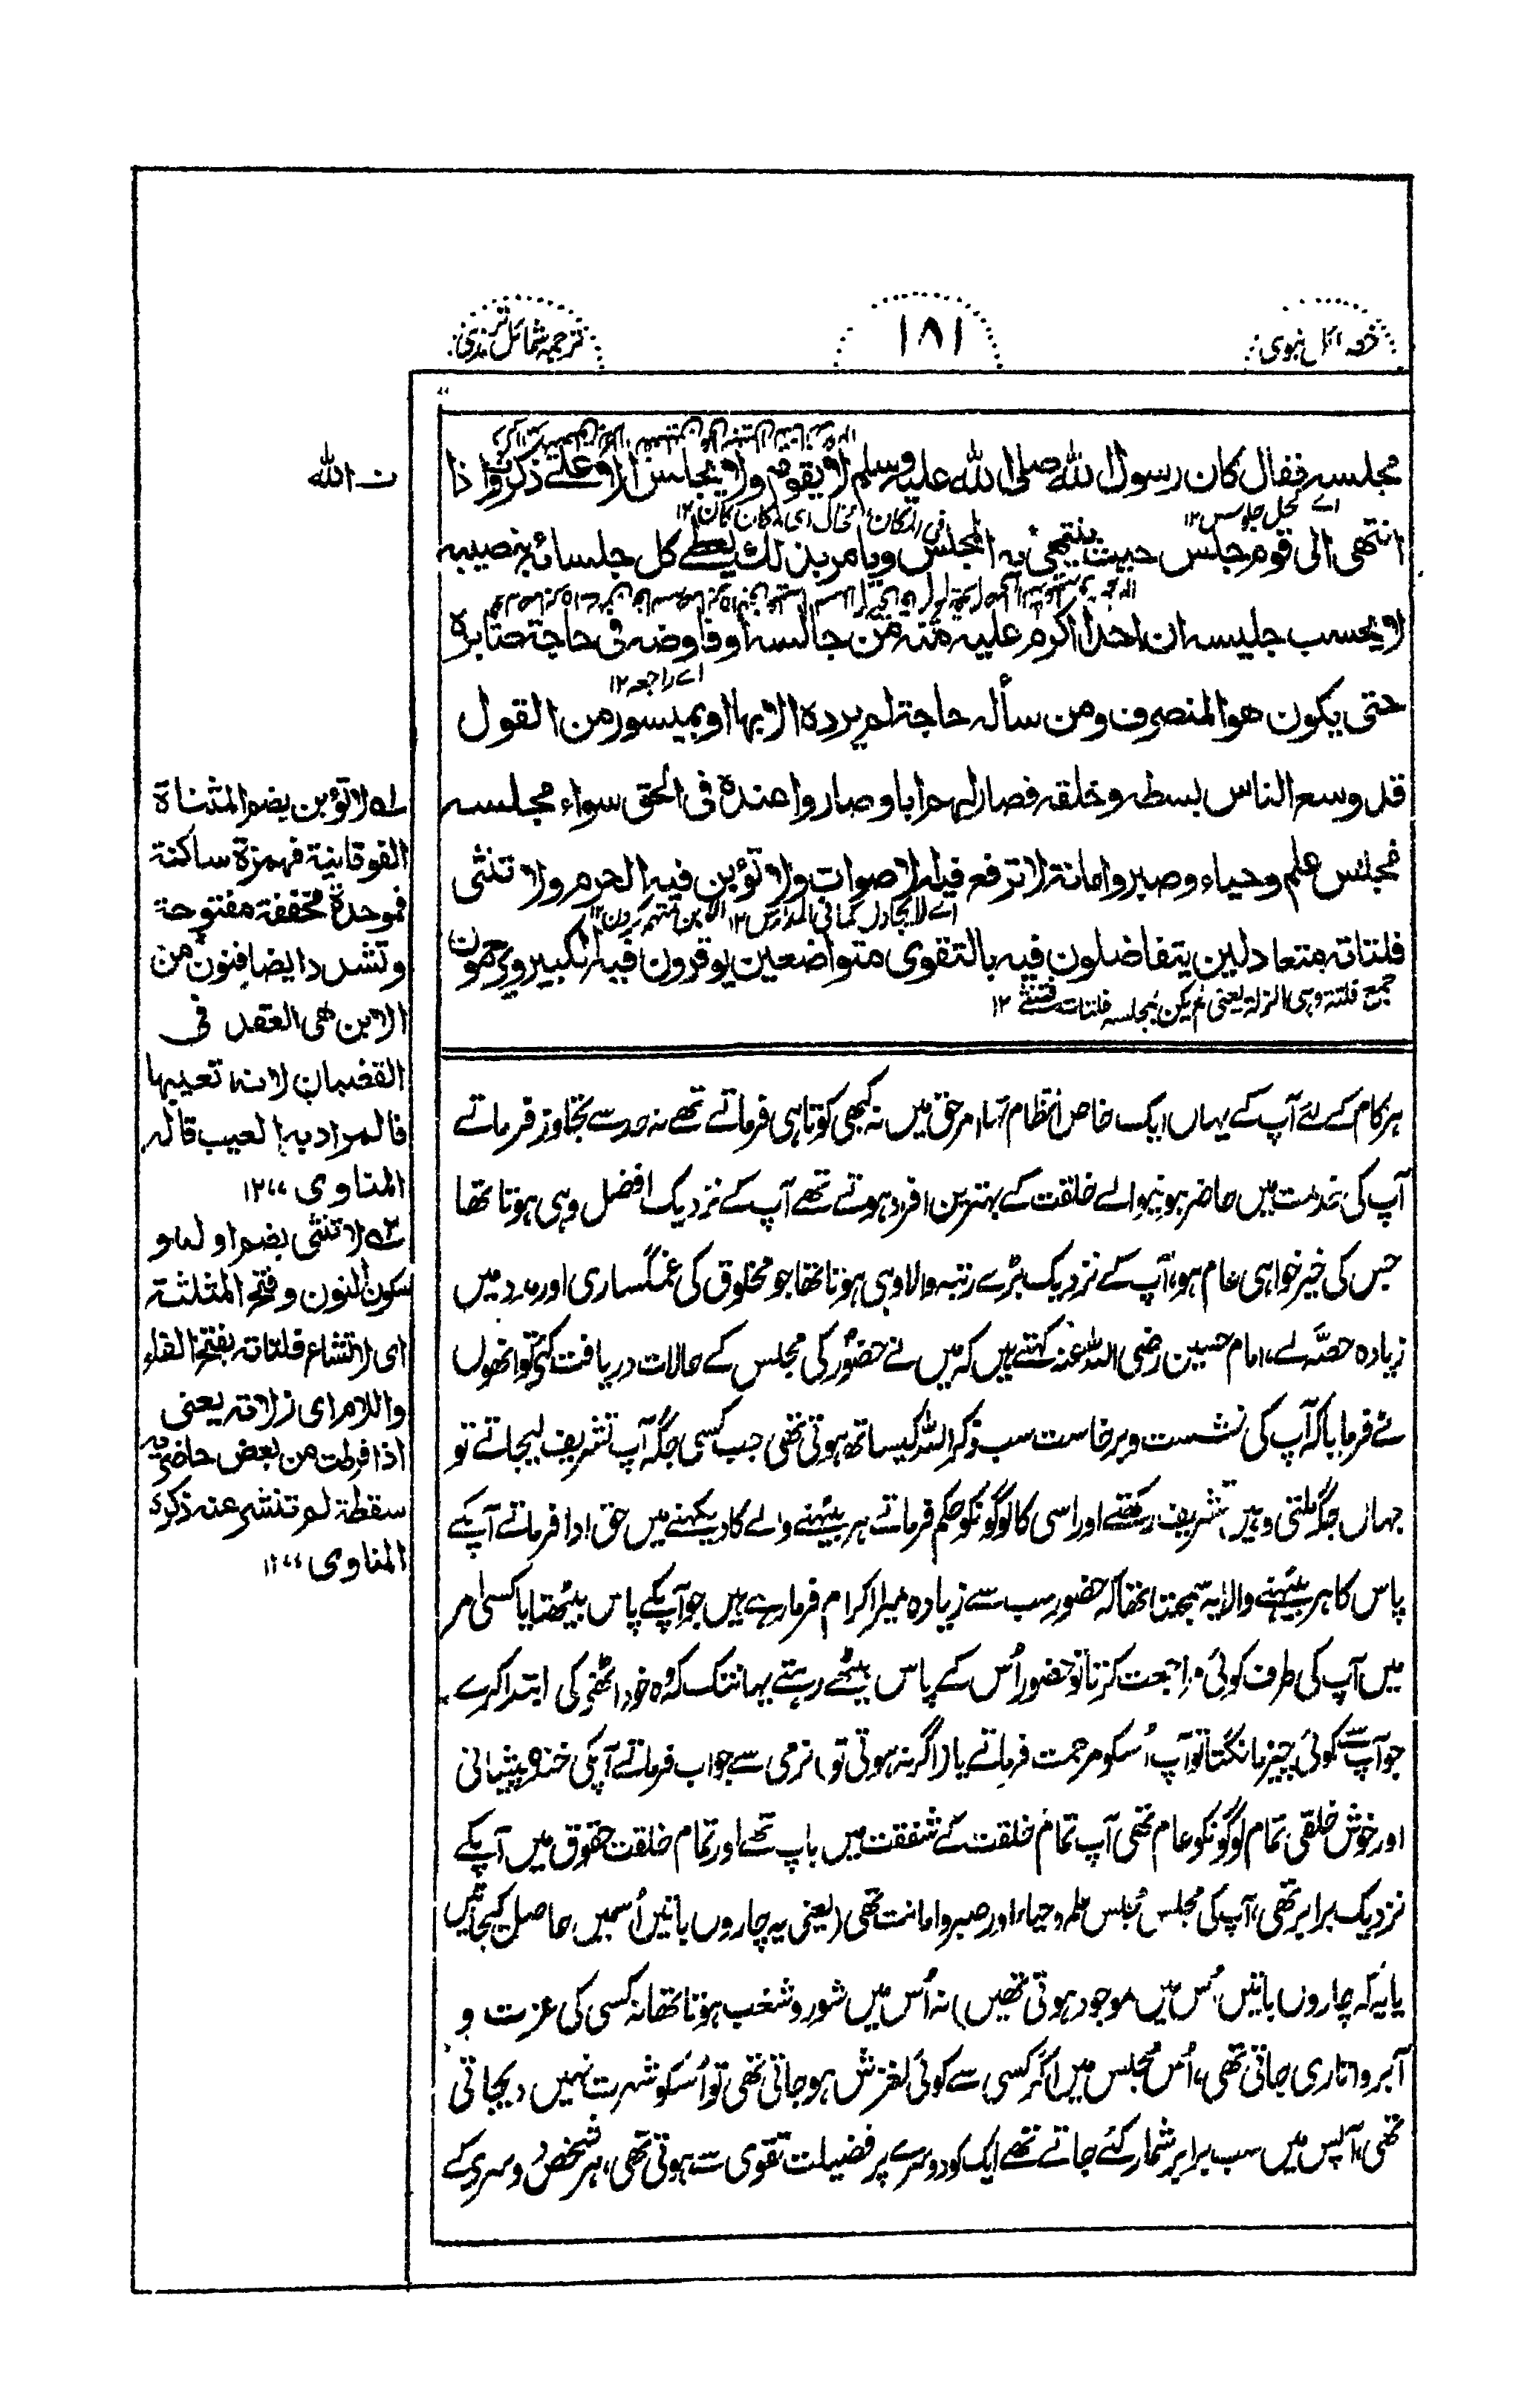 خصائل نبوی
۱۸۱
ترجمہ شمائل ترمذی
مجلسہ فقال کان رسول اللہ صلی اللہ علیہ وسلم لا یقوم ولا یجلس الا علی ذکر واذا
اے محل جلوس ۱۲
انتھی الی قوم جلس حیث ینتھی بہ المجلس ویامر بذلک یعطے کل جلسائہ بنصیبہ
لا یحسب جلیسہ ان احدا اکرم علیہ منہ من جالسہ او فاوضہ فی حاجۃ صابرہ
اے راجعہ ۱۲
حتی یکون ھو المنصرف ومن سألہ حاجۃ لم یردہ الا بھا او بمیسور من القول
قد وسع الناس بسطہ وخلقہ فصار لہم ابا وصاروا عندہ فی الحق سواء مجلسہ
مجلس علم وحیاء وصبر وامانۃ لا ترفع فیہ الاصوات ولا تؤبن فیہ الحرم ولا تنثی
فلتاتہ متعادلین یتفاضلون فیہ بالتقوی متواضعین یوقرون فیہ الکبیر ویرحمون
جمع فلتۃ وہی الزلۃ یعنی لم یکن لمجلسہ فلتات فتنثے ۱۲
ہر کام کے لئے آپ کے یہاں ایک خاص انتظام تہا امر حق میں نہ کبھی کوتاہی فرماتے تھے نہ حد سے تجاوز فرماتے
آپ کی خدمت میں حاضر ہونیوالے خلقت کے بہترین افراد ہوتے تھے آپ کے نزدیک افضل وہی ہوتا تھا
جس کی خیر خواہی عام ہو، آپ کے نزدیک بڑے رتبہ والا وہی ہوتا تھا جو مخلوق کی غمگساری اور مدد میں
زیادہ حصہ لے، امام حسین رضی اللہ عنہ کہتے ہیں کہ میں نے حضورؐ کی مجلس کے حالات دریافت کئے تو انھوں
نے فرمایا کہ آپ کی نشست وبرخاست سب ذکر اللہ کیساتھ ہوتی تھی جب کسی جگہ آپ تشریف لیجاتے تو
جہاں جگہ ملتی وہیں تشریف رکھتے اور اسی کا لوگونکو حکم فرماتے ہر بیٹھنے والے کا دیکہنے میں حق ادا فرماتے آپکے
پاس کا ہر بیٹھنے والا یہ سمجھتا تھا کہ حضور سب سے زیادہ میرا اکرام فرما رہے ہیں جو آپکے پاس بیٹھتا یا کسی امر
میں آپ کی طرف کوئی مراجعت کرتا تو حضور اُس کے پاس بیٹھے رہتے یہانتک کہ وہ خود اٹھنے کی ابتدا کرے
جو آپ سے کوئی چیز مانگتا تو آپ اُسکو مرحمت فرماتے یا (اگر نہ ہوتی تو) نرمی سے جواب فرماتے آپکی خندہ پیشانی
اور خوش خلقی تمام لوگونکو عام تھی آپ تمام خلقت کے شفقت میں باپ تھے اور تمام خلقت حقوق میں آپکے
نزدیک برابر تھی، آپ کی مجلس مجلس علم وحیاء اور صبر وامانت تھی (یعنی یہ چاروں باتیں اُسمیں حاصل کیجاتیں
یا یہ کہ چاروں باتیں اُس میں موجود ہوتی تھیں) نہ اُس میں شور وشغب ہوتا تھا نہ کسی کی عزت و
آبرو اتاری جاتی تھی، اُس مجلس میں اگر کسی سے کوئی لغزش ہو جاتی تھی تو اُسکو شہرت نہیں دیجاتی
تھی، آپس میں سب برابر شمار کئے جاتے تھے ایک کو دوسرے پر فضیلت تقوی سے ہوتی تھی، ہر شخص دوسرے کے
ن اللہ
لہ لا تؤبن بضم المثناۃ
الفوقانیۃ فہمزۃ ساکنۃ
فموحدۃ مخففۃ مفتوحۃ
وتشدد ایضا فنون من
الابن ھی العقد فی
القضبان لانہ تعیبہا
فالمراد بہ العیب قالہ
المناوی ۱۲
لا تنثی بضم اولہ و
سکون النون وفتح المثلثۃ
ای لا تشاع فلتاتہ بفتح الفاء
واللام ای زلاتہ یعنی
اذا فرطت من بعض حاضریہ
سقطۃ لم تنشر عنہ ذکرہ
المناوی ۱۲